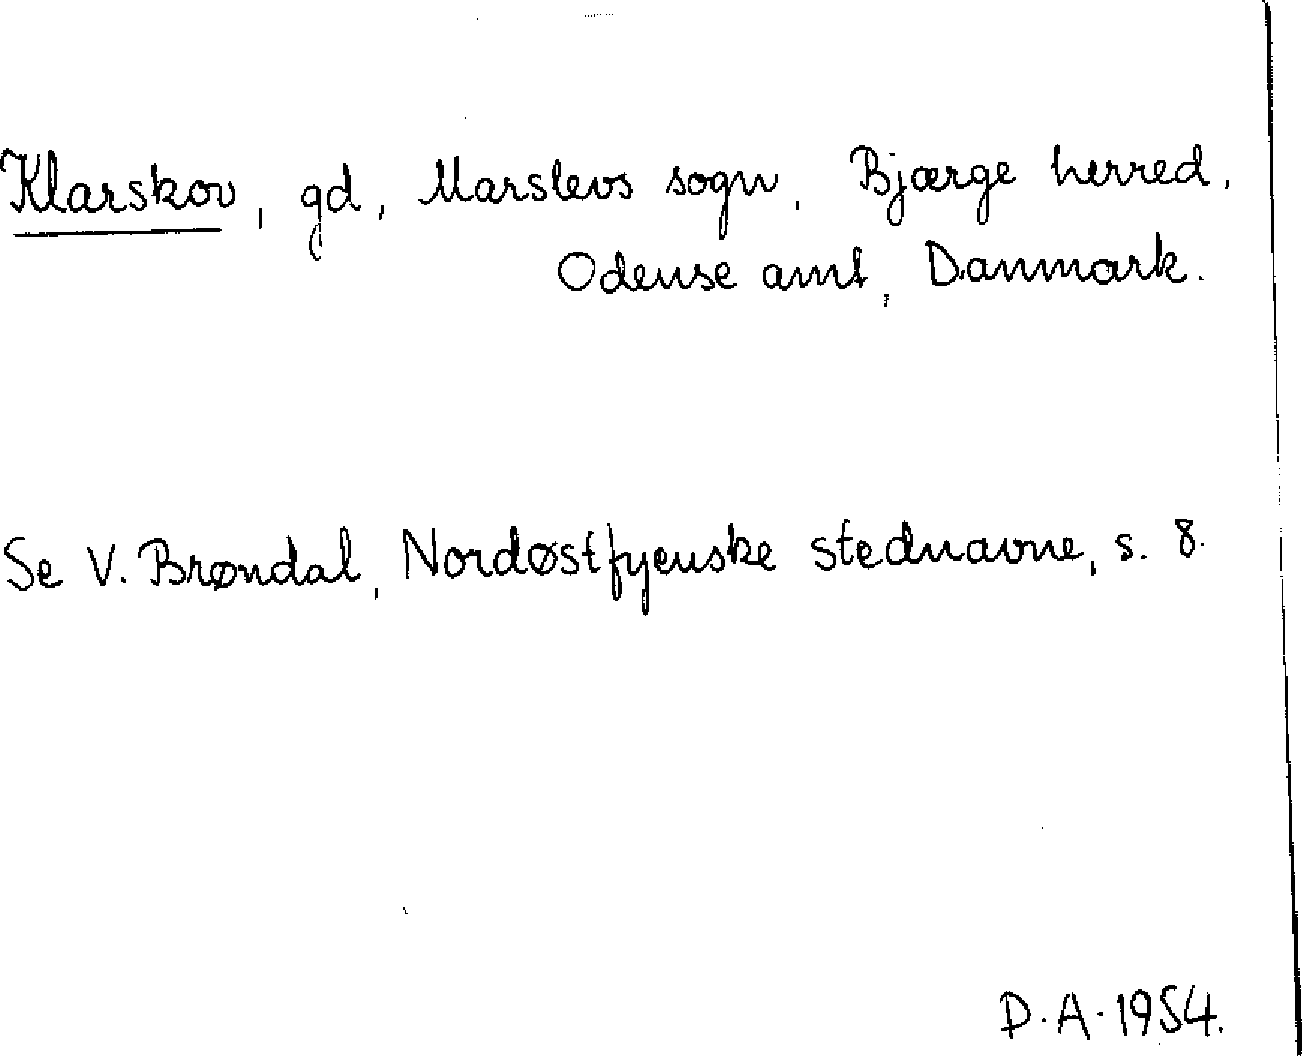 Klarskov, gd, Marslevs sogn, Bjærge herred,
Odense amt, Danmark.
Se V. Brøndal, Nordøstfyenske stednavne, s. 8.
D.A. 1954.